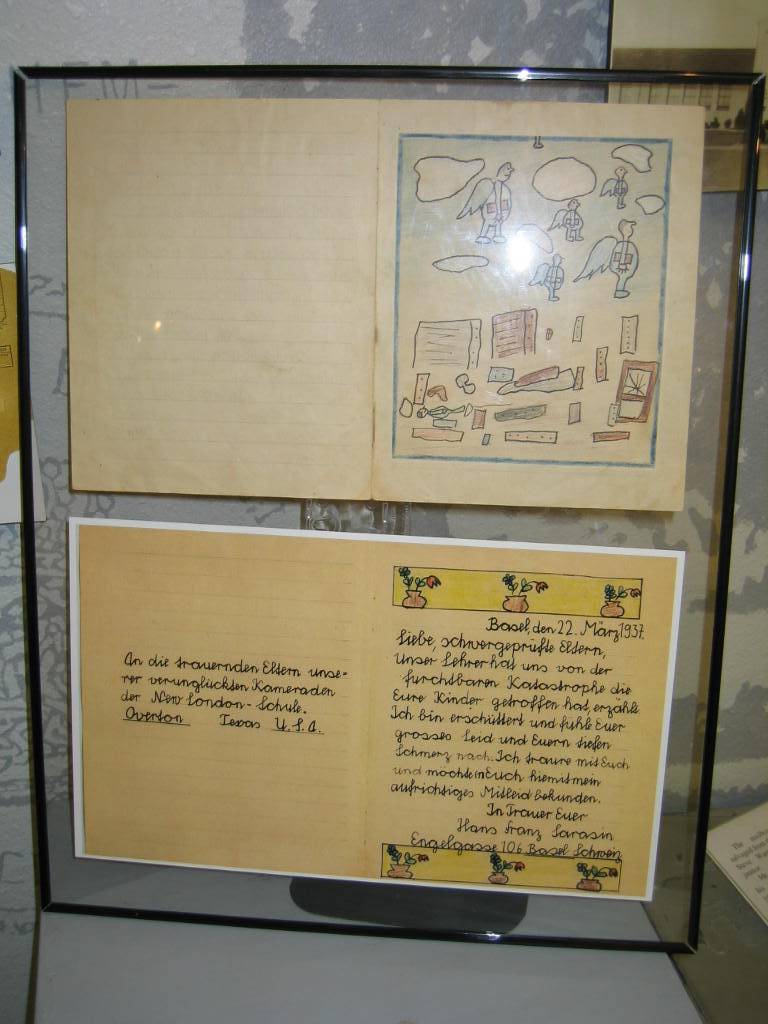 An die trauernden Eltern unse-
rer verunglückten Kameraden
der New London-Schule.
Overton Texas U.S.A.
Basel, den 22. März 1937.
Liebe, schwergeprüfte Eltern,
Unser Lehrer hat uns von der
furchtbaren Katastrophe die
Eure Kinder getroffen hat, erzählt
Ich bin erschüttert und fühle Euer
grosses Leid und Euern tiefen
Schmerz nach. Ich traure mit Euch
und möchte in Euch hiemit mein
aufrichtiges Mitleid bekunden.
In Trauer Euer
Hans Franz Sarasin
Engelgasse 106 Basel Schweiz